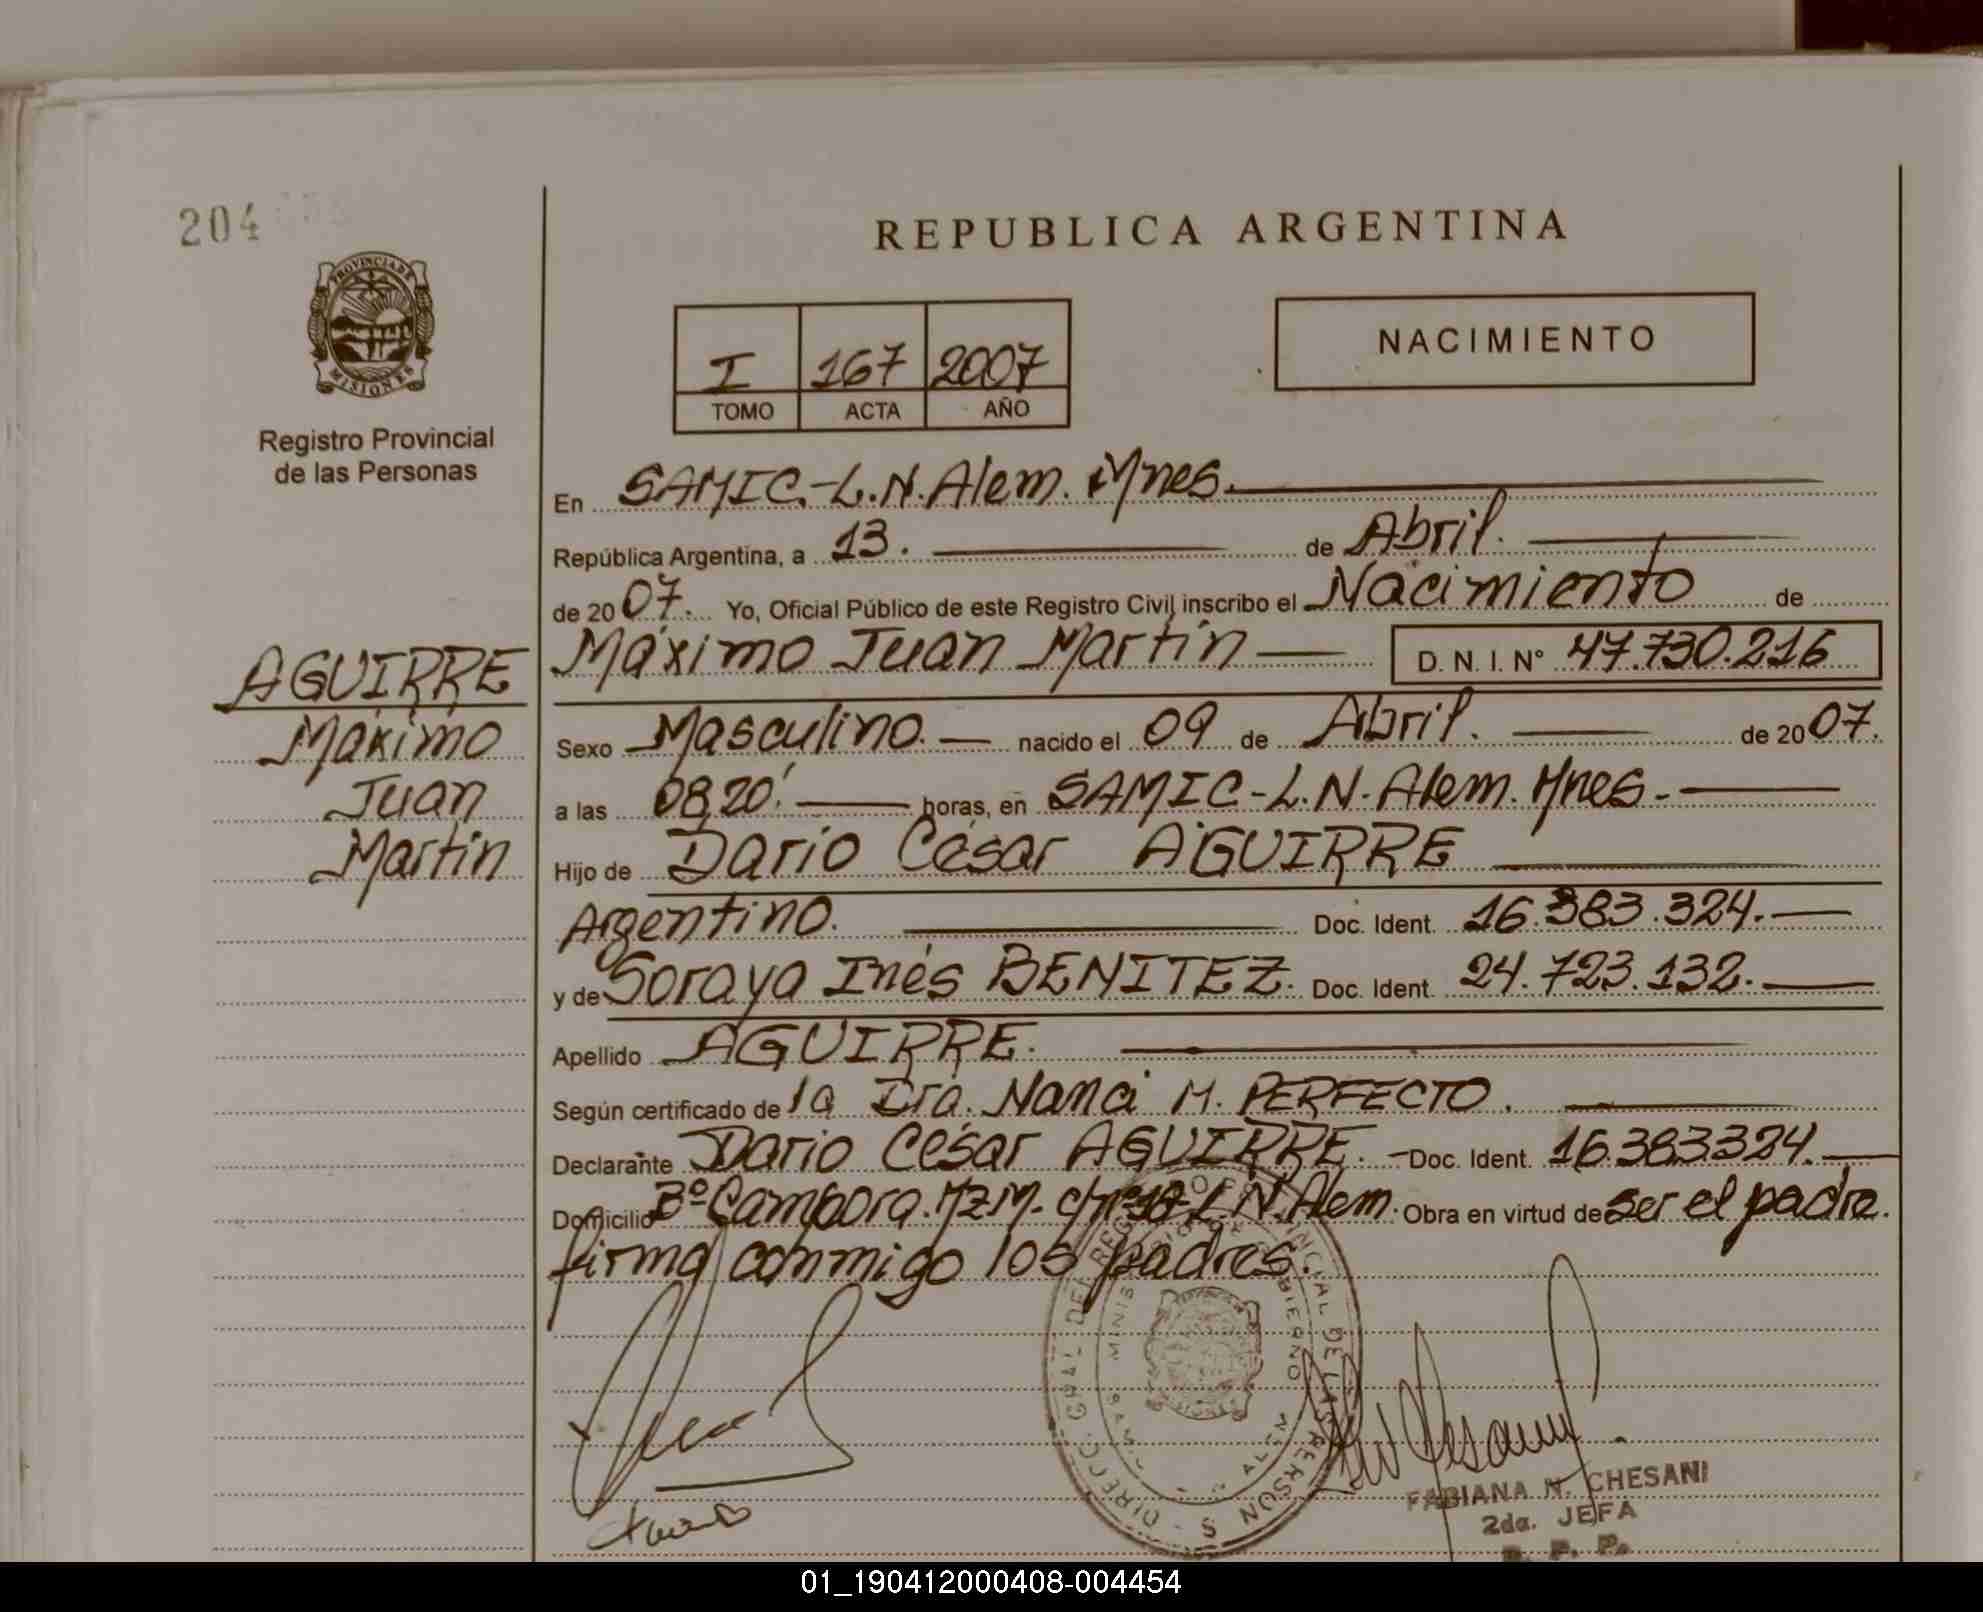 204
PROVINCIA DE
MISIONES
Registro Provincial
de las Personas
REPUBLICA ARGENTINA
I 167 2007
TOMO ACTA AÑO
NACIMIENTO
En SAMIC.-L.N.Alem. Mnes.
República Argentina, a 13. de Abril.
de 2007. Yo, Oficial Público de este Registro Civil inscribo el Nacimiento de
Máximo Juan Martín D. N. I. Nº 47.730.216
AGUIRRE
Máximo
Juan
Martín
Sexo Masculino. nacido el 09 de Abril. de 2007.
a las 08,20'. horas, en SAMIC-L.N.Alem. Mnes-
Hijo de Darío César AGUIRRE
Argentino. Doc. Ident. 16.383.324.
y de Soraya Inés BENITEZ. Doc. Ident. 24.723.132.
Apellido AGUIRRE.
Según certificado de la Dra. Nanci M. PERFECTO.
Declarante Darío César AGUIRRE. Doc. Ident. 16.383324.
Domicilio Bº Campora. Mz M. L.N.Alem. Obra en virtud de ser el padre.
firma conmigo los padres.
FABIANA N. CHESANI
2da. JEFA
R. P. P.
01_190412000408-004454